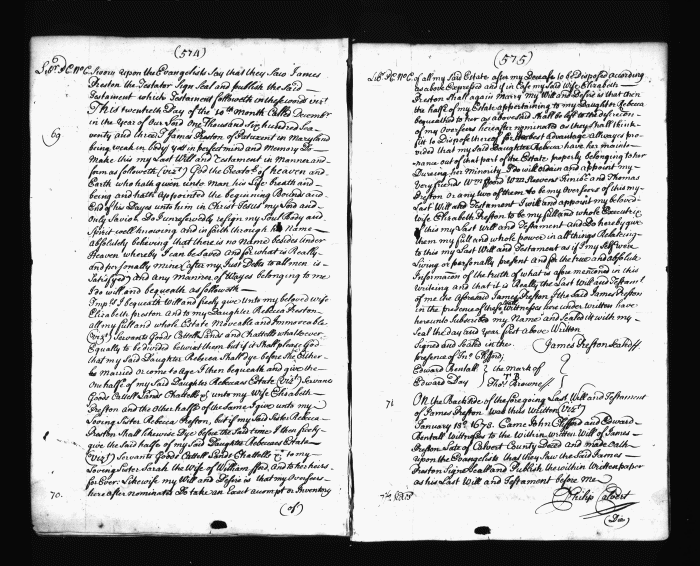 (574)
Sworn upon the Evangelists Say that they Saw James
Preston the Testator Sign Seal and publish the Said
Testament which Testament followeth in these words vizt
This twentieth Day of the 10th Month Called December
in the Year of Our Lord One Thousand Six hundred Sea-
69
venty and three I James Preston of Patuxent in Maryland
being weak in Body yet in perfect mind and Memory Do
Make this my Last Will and Testament in Manner and
form as followeth (vizt) God the Creator of heaven and
Earth who hath given unto Man his Life breath and
being and hath appointed the beginning Bounds and
End of his Days unto him in Christ Jesus my Lord and
Only Saviour Do I unreservedly resign my Soul Body and
Spirit well knowing and in faith through his Name
Absolutely believing that there is no Name besides Under
Heaven whereby I can be Saved and for what is Really
and personally mine (after my Just Debts to all men is
Satisfyed) and Any manner of Ways belonging to me
I do will and bequeath as followeth
Imprs I bequeath Will and freely give unto my beloved wife
Elizabeth preston and to my Daughter Rebecca Preston
all my full and whole Estate Moveable and Immoveable
(vizt) Servants Goods Cattell Lands and Chattolls whatsoever
Equally to be divided betwixt them but if it shall please God
that my Said Daughter Rebecca Shall dye before She Either
be married or come to age I then bequeath and give the
One halfe of my Said Daughter Rebeccas Estate (vizt) Servants
Goods Cattell Lands Chattolls &c unto my Wife Elizabeth
Preston and the Other halfe of the Same I give unto my
Loving Sister Rebecca Preston, but if my Said Sister Rebecca
Preston Shall likewise dye before the Said time I then freely
give the Said halfe of my Said Daughter Rebeccas Estate
(vizt) Servants Goods Cattell Lands Chattolls &c to my
Loving Sister Sarah the Wife of William fford and to her heirs
for Ever Likewise my Will and Desire is that my Overseers
70.
here after nominated Do take an Exact accompt or Inventory
(of)
(575)
of all my Said Estate after my Decease to be disposed according
as above Expressed and if in Case my Said Wife Elizabeth
Preston Shall again Marry my Will and Desire is that then
the halfe of my Estate appertaining to my Daughter Rebecca
bequeathed to her as abovesaid Shall be left to the discretion
of my Overseers hereafter nominated as they Shall think
fitt to Dispose thereof for her best Advantage allways pro-
vided that my Said Daughter Rebecca have her mainte-
nance out of that part of the Estate properly belonging to her
Dureing her Minority I do will ordain and appoint my
Very friends Wm fford Wm and Thomas
Preston or any two of them to be my Overseers of this my
Last Will and Testament I will and appoint my beloved
wife Elizabeth Preston to be my full and whole Executrix
of this my Last Will and Testament and Do hereby give
them my full and whole power in all things Relateing
to this my Last Will and Testament as if I my Self were
Living or personally present and for the true and absolute
Information of the truth of what is afore mentioned in this
writing and that it is Really the Last Will and Testament
of me the Aforesaid James Preston I the Said James Preston
in the presence of these Witnesses here under written have
hereunto Subscribed my Name and Sealed it with my
Seal the day and Year first above Written
Signed and Sealed in the James Preston Sealed
presence of Jno Clifford,
Edward Rentall the mark of
Edward Day Thos Browne
71
On the Backside of the foregoing Last Will and Testament
of James Preston was thus Written (vizt)
January 18th 1673. Came John Clifford and Edward
Rentall Witnesses to the Within written Will of James
Preston Late of Calvert County Decd and made Oath
upon the Evangelists that they Saw the Said James
Preston Sign Seal and Publish the within Written paper
as his Last Will and Testament before me
Philip Calvert